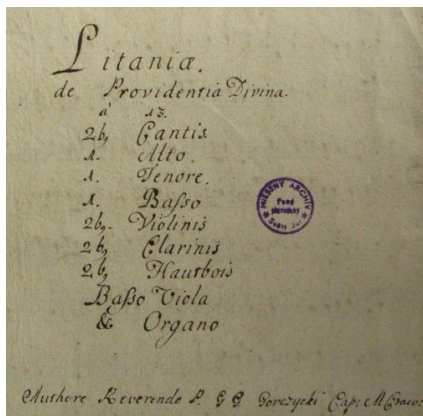 Litaniæ.
de Providentia Divina.
a 13.
2b, Cantis
1. Alto.
1. Tenore.
1. Basso
2b, Violinis
2b, Clarinis
2b, Hautbois
Basso Viola
& Organo
MIESTNY ARCHÍV
Fond
Svätý Jur
Authore Reverendo P. G G. Gorczycki Cap: M Cracov: